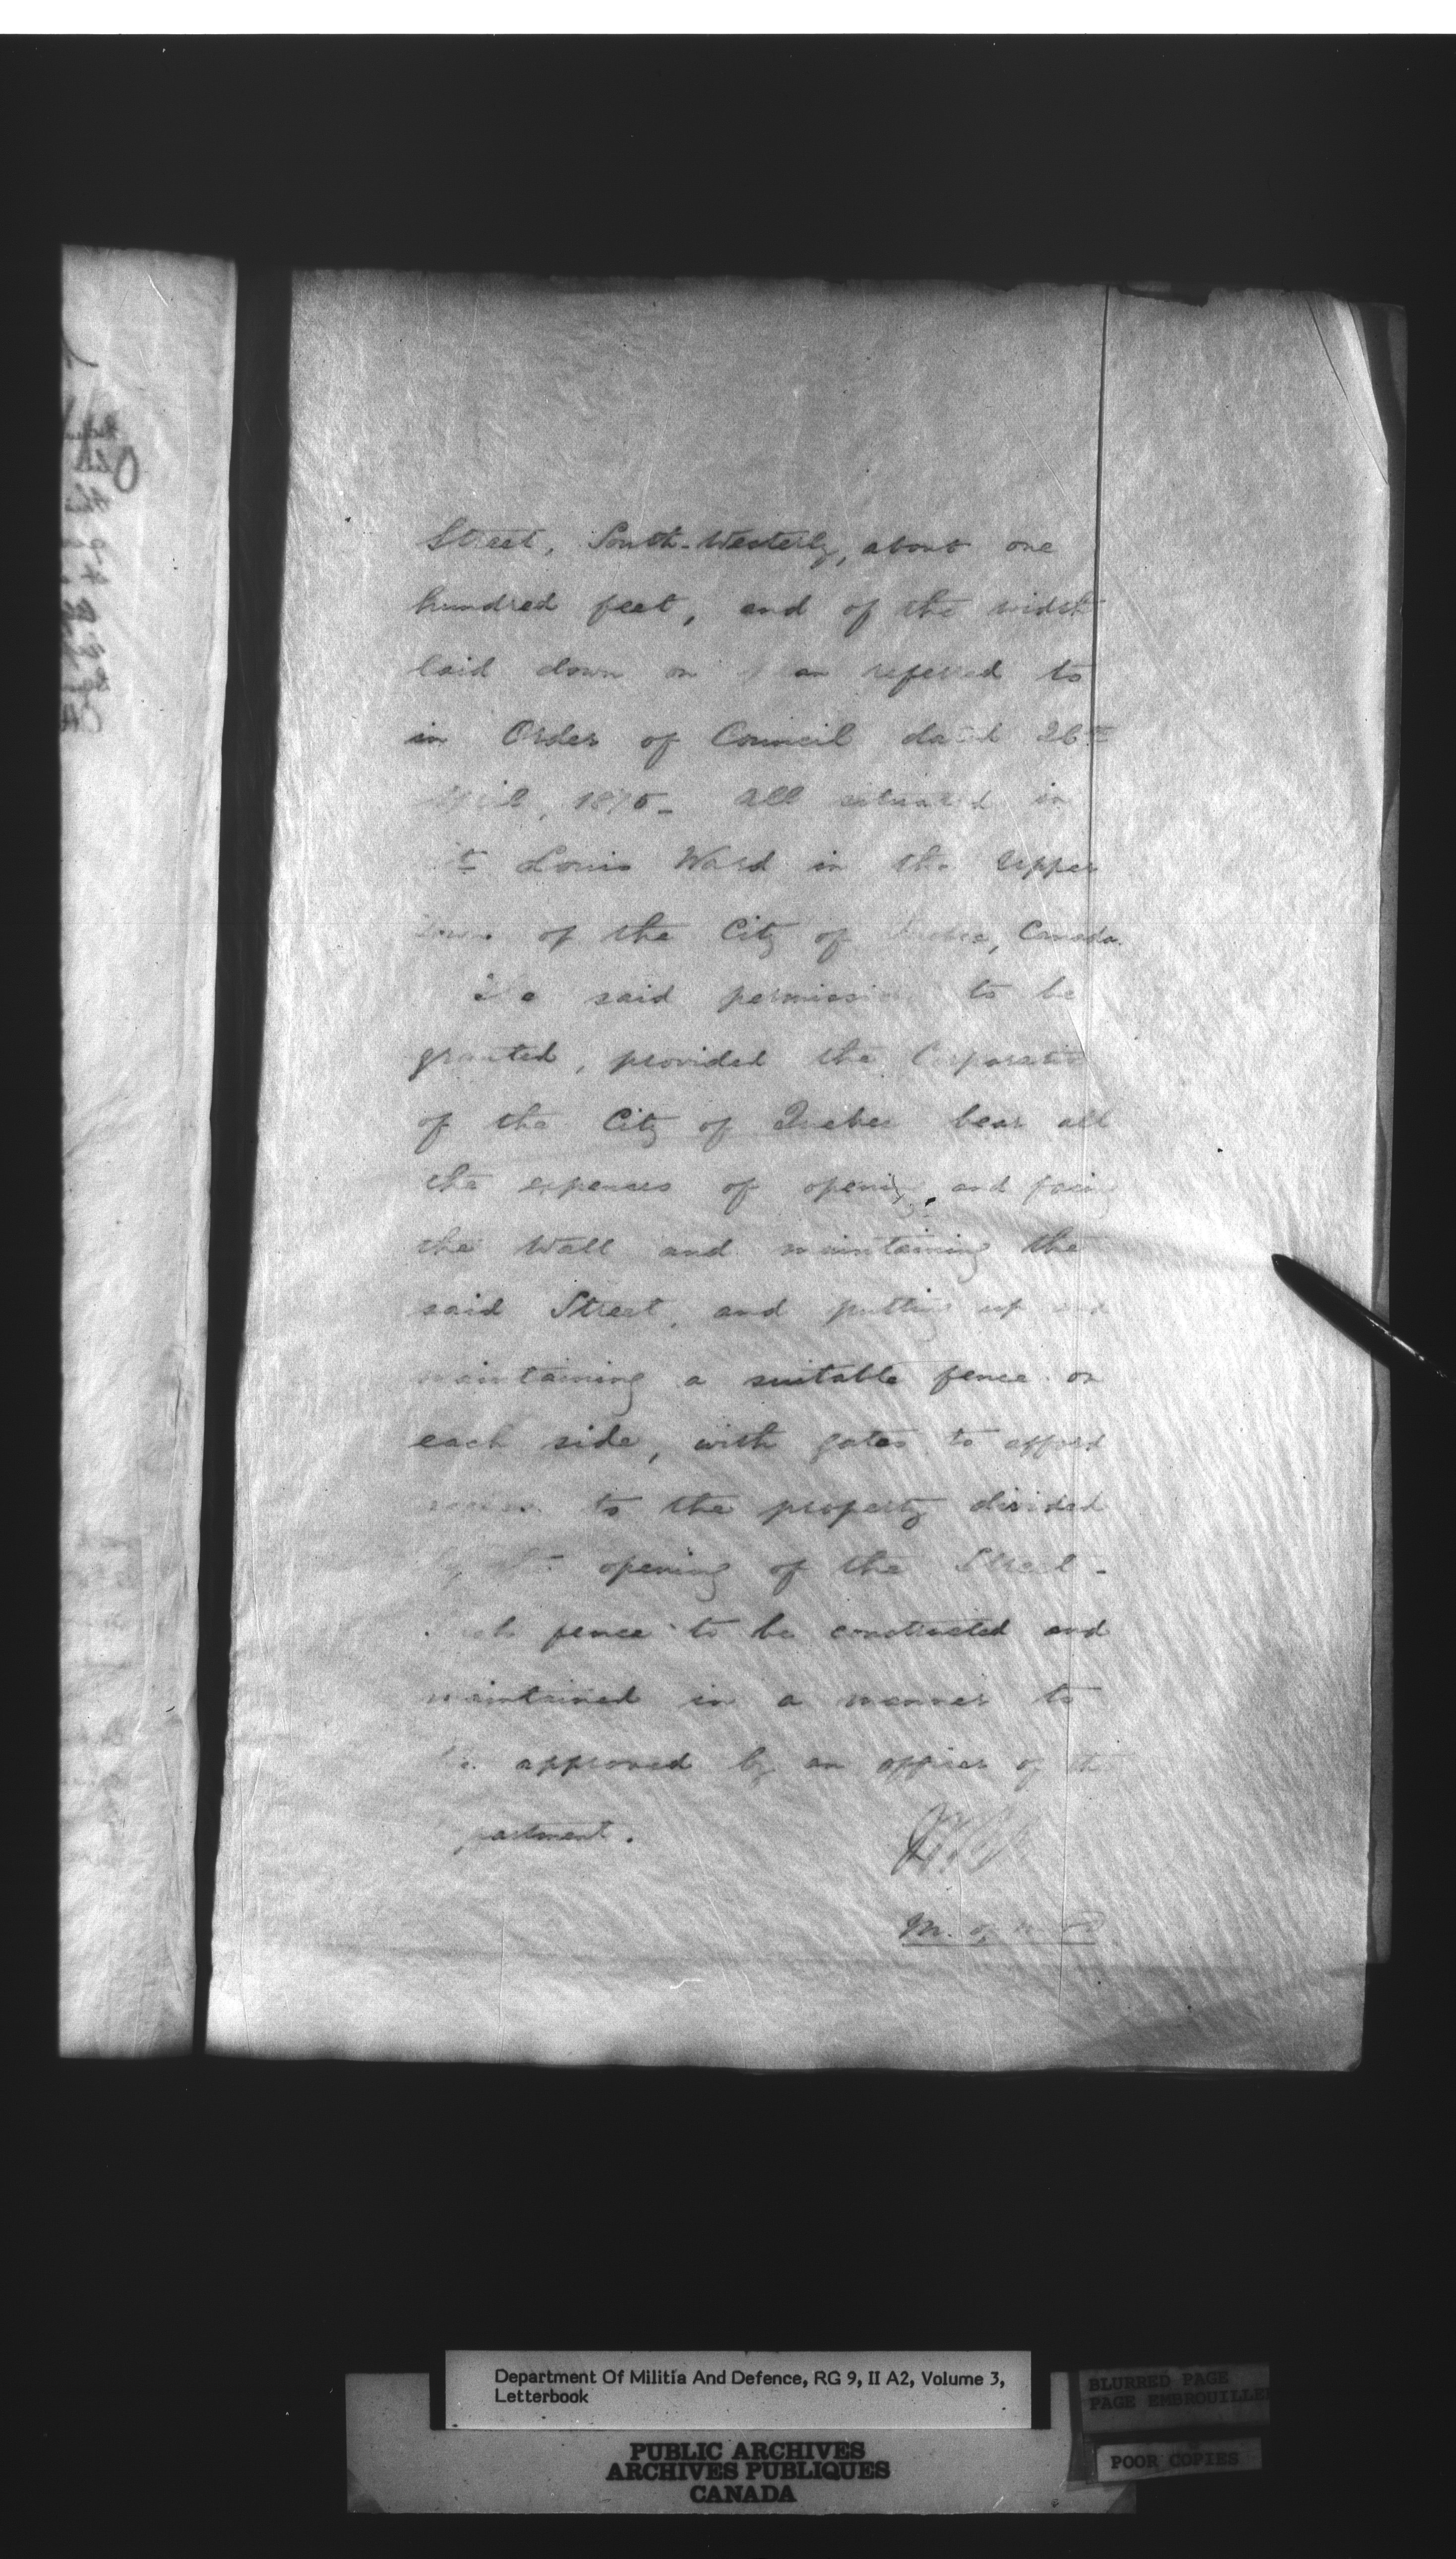 Street, South-Westerly, about one
hundred feet, and of the width
laid down on plan referred to
in Order of Council dated 26th
April, 1875_ All situated in
St Louis Ward in the Upper
Town of the City of Quebec, Canada.
The said permission to be
granted, provided the Corporation
of the City of Quebec bear all
the expenses of opening, and facing
the Wall and maintaining the
said Street, and putting up and
maintaining a suitable fence on
each side, with gates to afford
access to the property divided
by the opening of the Street -
Such fence to be constructed and
maintained in a manner to
be approved by an officer of the
partment.
M. of M. D.
Department Of Militia And Defence, RG 9, II A2, Volume 3,
Letterbook
BLURRED PAGE
PAGE EMBROUILLEE
PUBLIC ARCHIVES
ARCHIVES PUBLIQUES
CANADA
POOR COPIES